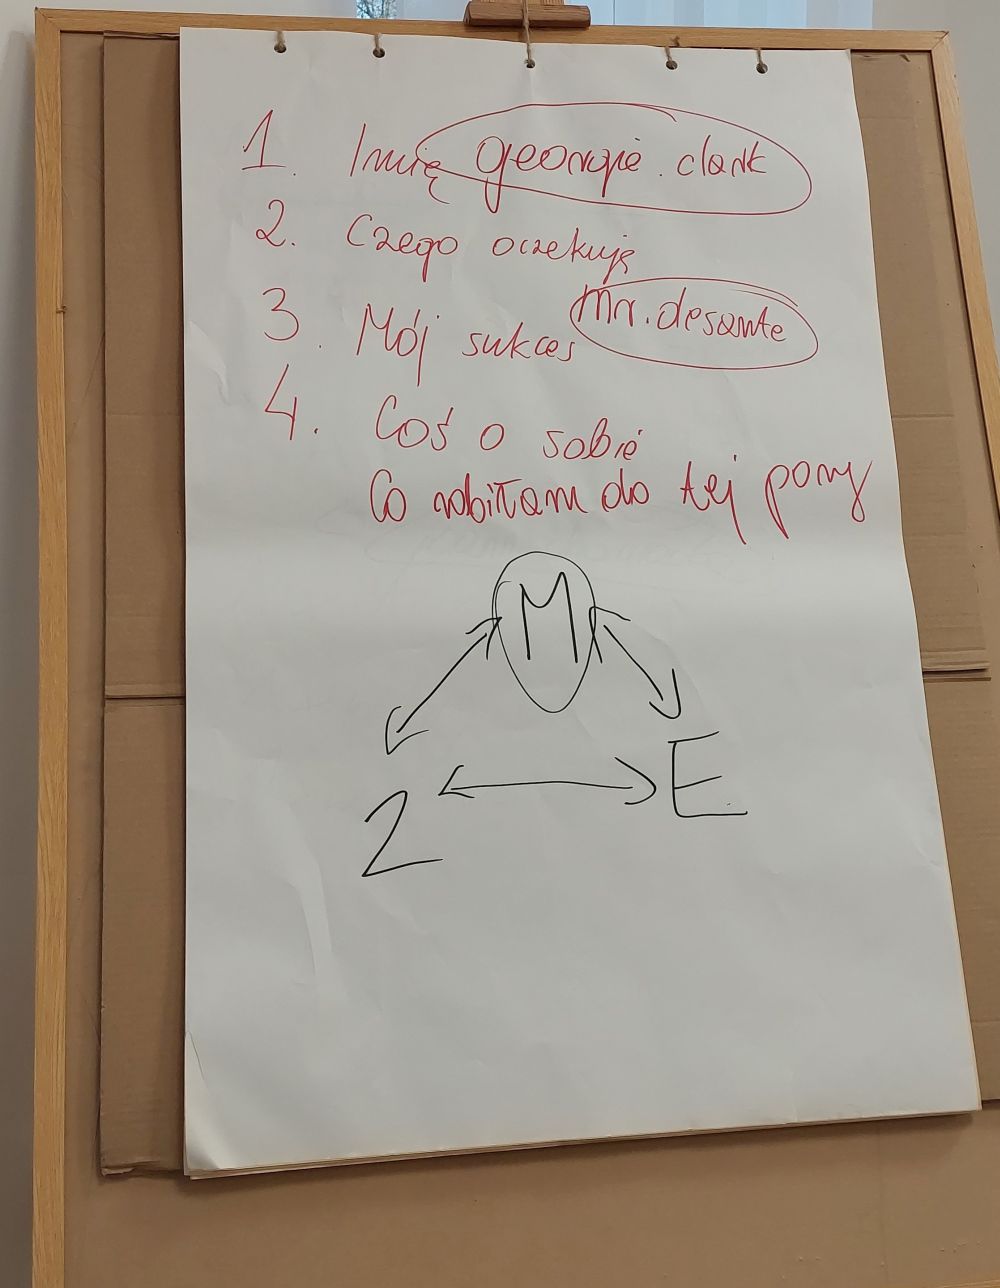 1. Imię georgie.clark
2. Czego oczekuję
3. Mój sukces mr.desante
4. Coś o sobie
Co robiłam do tej pory
M
2 E